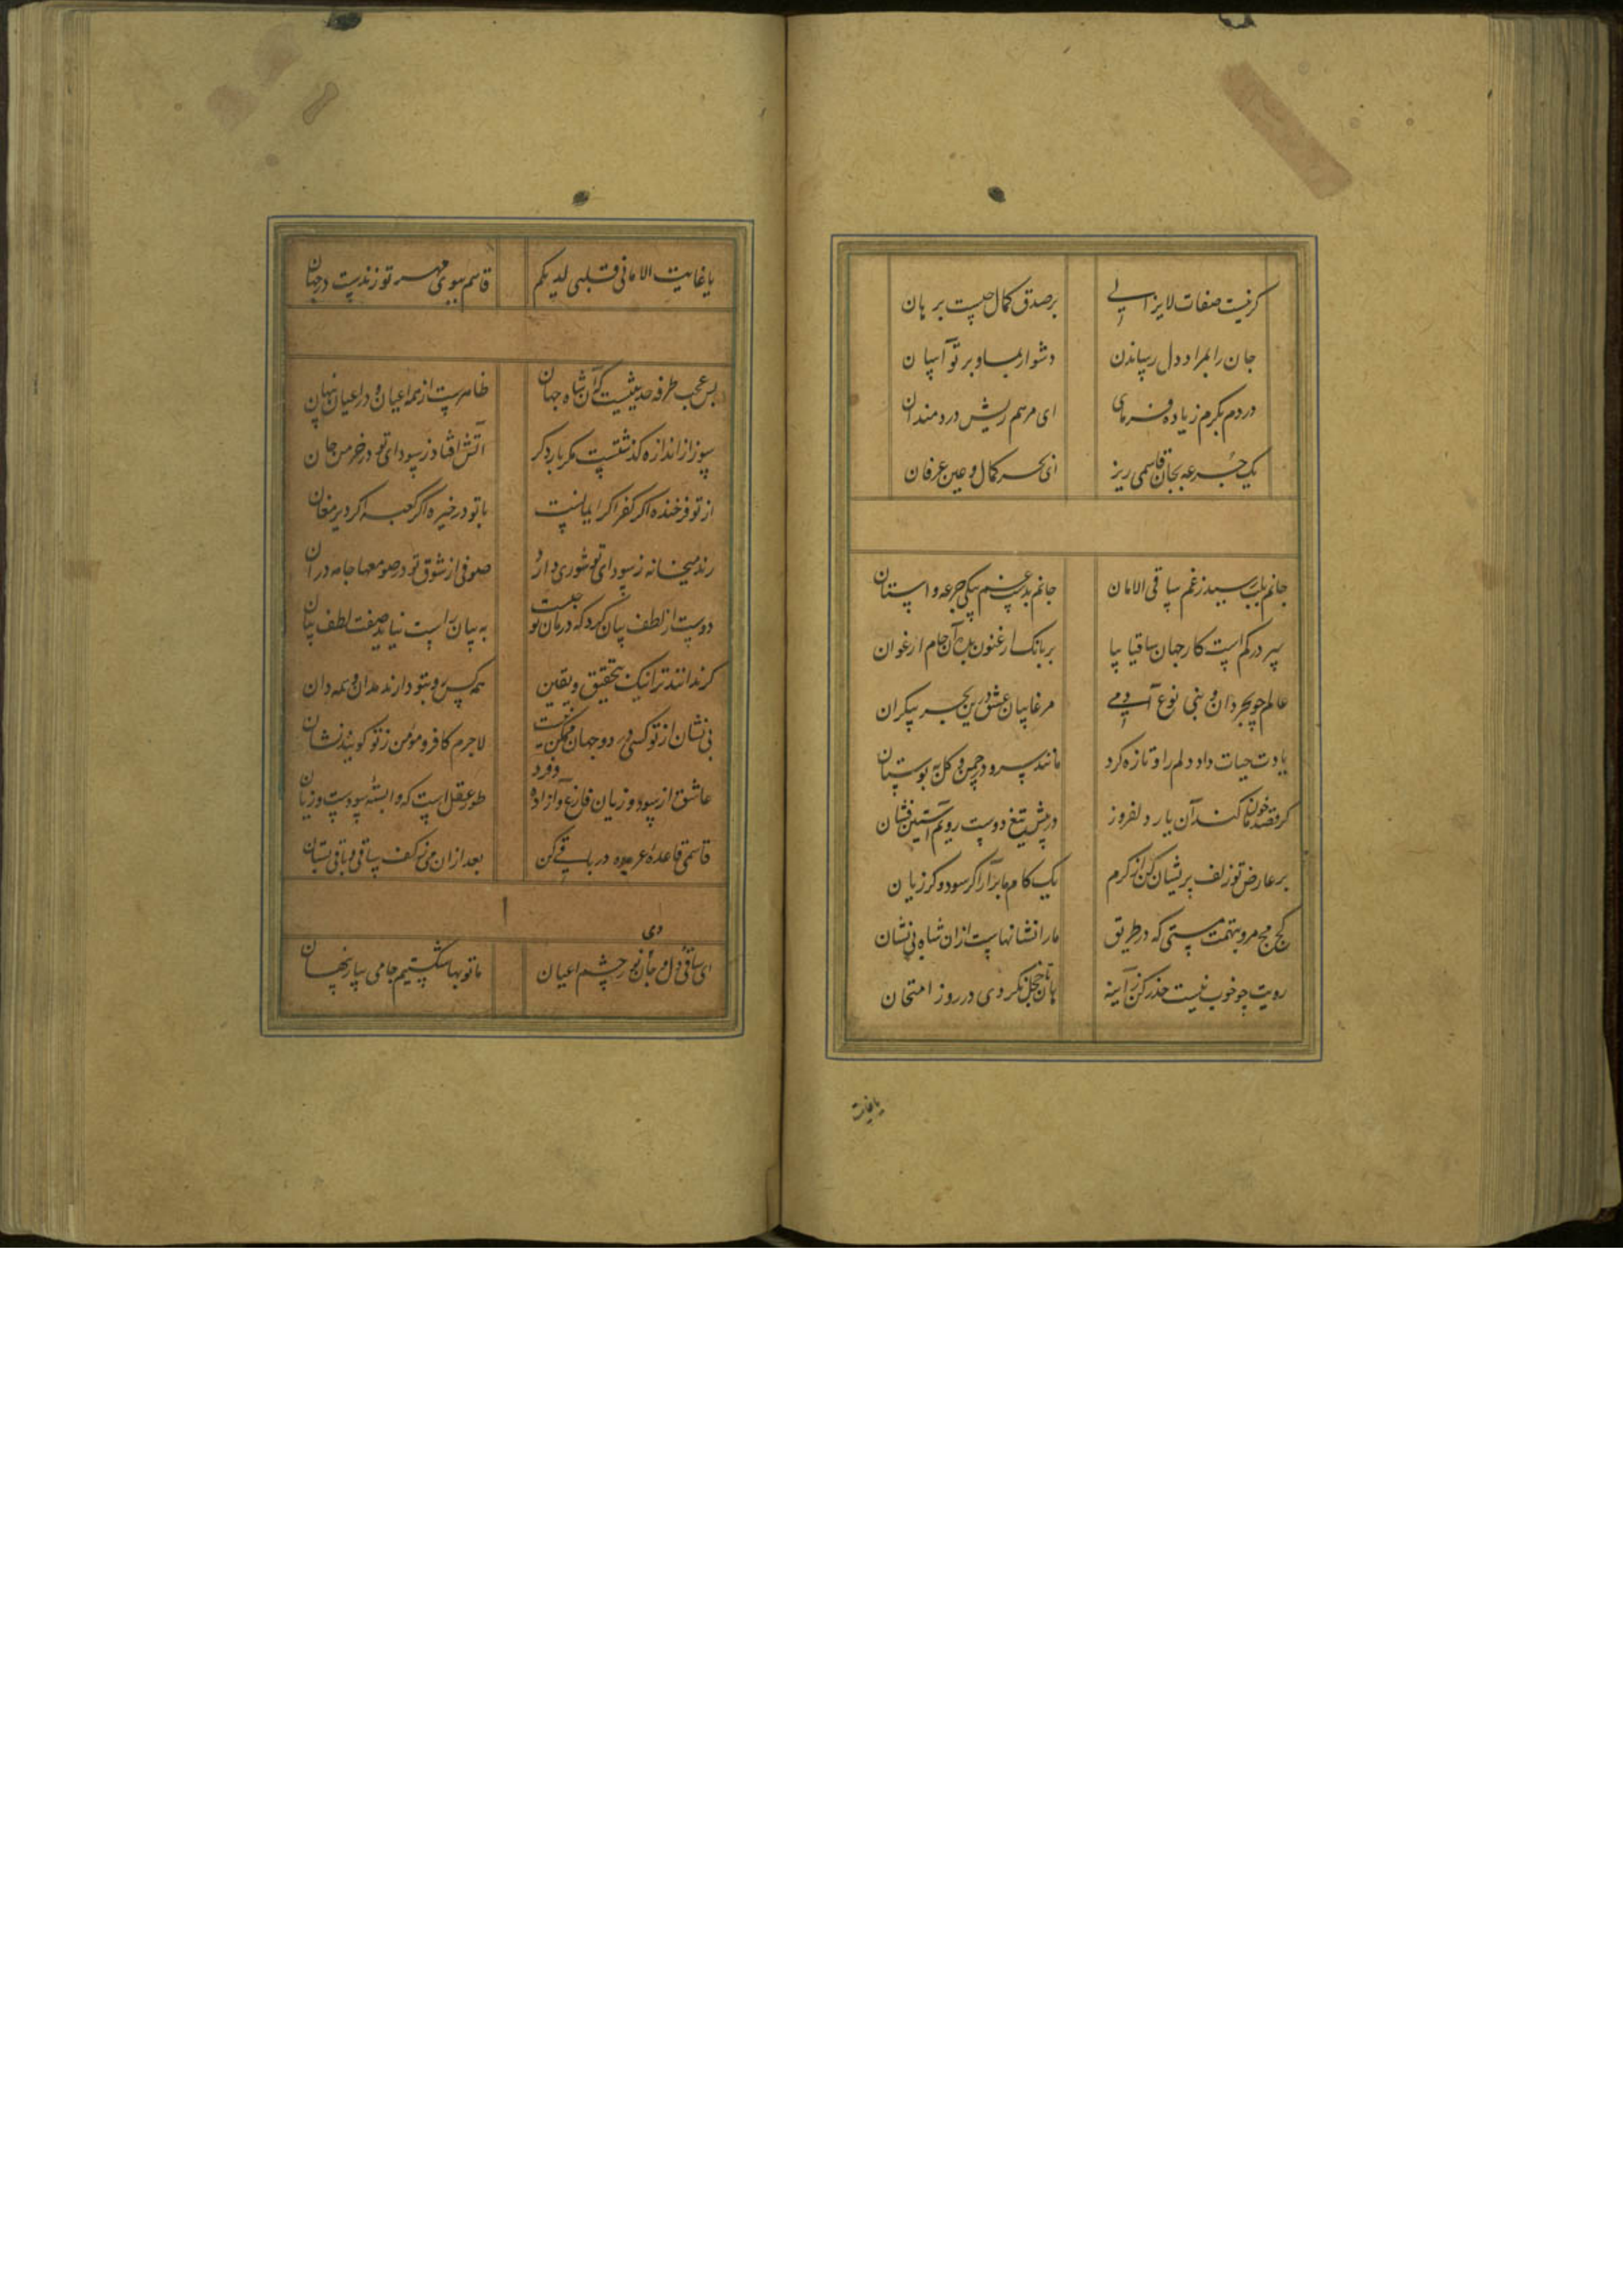 گرنیست صفات لایزالی بر صدق کمال چیست برهان
جان را بمراد دل رساندن دشوار بما و بر تو آسان
دردم بکرم زیاده فرمای ای مرهم ریش دردمندان
یک جرعه بجان قاسمی ریز ای بحر کمال و عین عرفان
جانم بلب رسید ز غم ساقی الامان جانم بیک جرعه واستان
سر درکم است کار جهان ساقیا بیا بر بانک ارغنون بده آن جام ارغوان
عالم چو بحر دان و بنی نوع آدمی مرغابیان عشق درین بحر بیکران
یادت حیات داد دلم را و تازه کرد مانند سرو در چمن و گل به بوستان
گر قصد خون ما کند آن یار دلفروز در پیش تیغ دوست رویم آستین فشان
بر عارض تو زلف پریشان کن از کرم یک کام ما برآر اگر سود و گر زیان
کج مج مرو بتهمت مستی که در طریق ما را نشانهاست ازان شاه بی نشان
رویت چو خوب نیست حذر کن ز آینه هان تا خجل نگردی در روز امتحان
یا غایت
یا غایت الامانی قلبی لدیکم قاسم ببوی مهر تو زندست در جهان
بس عجب طرفه حدیثیست که آن شاه جهان ظاهرست از همه اعیان و در اعیان نهان
سوز از اندازه گذشتست مگر بار دگر آتش افتاد ز سودای تو در خرمن جان
از تو فرخنده اگر کفر اگر ایمانست با تو در خیره اگر کعبه اگر دیر مغان
رند میخانه ز سودای تو شوری دارد صوفی از شوق تو در صومعها جامه دران
دوست از لطف بیان کرد که درمان تو چیست به بیان راست نیاید صفت لطف بیان
گر ندانند ترا نیک بتحقیق و یقین همه کس رو بتو دارند مدان و همه دان
بی نشان از تو کسی در دو جهان ممکن نیست لاجرم کافر و مؤمن ز تو گویند نشان
عاشق از سود و زیان فارغ و آزاده رود طور عقل است که وابسته سودست و زیان
قاسمی قاعده عربده در باقی کن بعد ازان می ز کف ساقی باقی بستان
ای ساقی دل و جان وی نور چشم اعیان ما توبها شکستیم جامی بیار پنهان